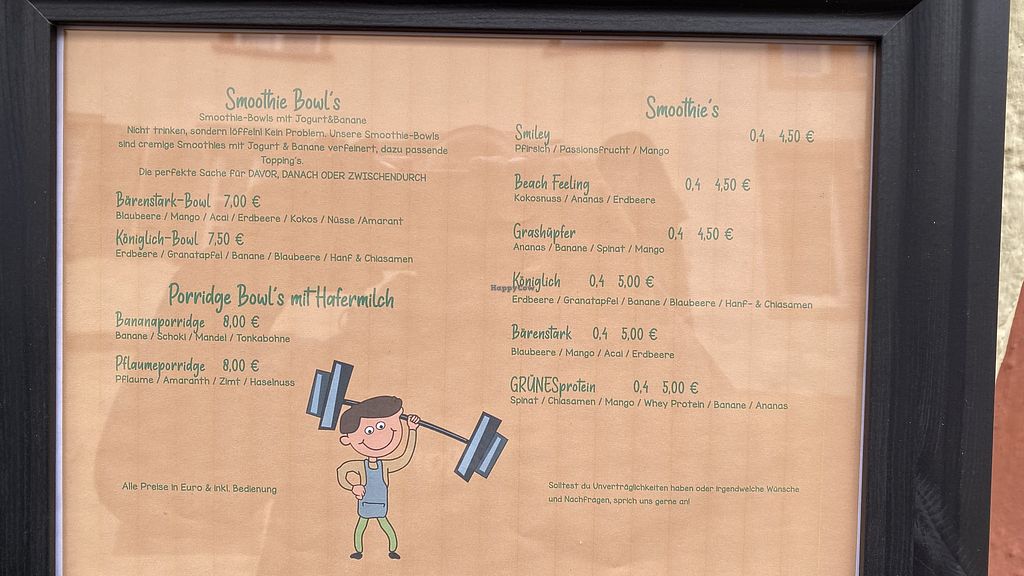 Smoothie Bowl's
Smoothie-Bowls mit Jogurt&Banane
Nicht trinken, sondern löffeln! Kein Problem. Unsere Smoothie-Bowls
sind cremige Smoothies mit Jogurt & Banane verfeinert, dazu passende
Topping's.
Die perfekte Sache für DAVOR, DANACH ODER ZWISCHENDURCH
Bärenstark-Bowl 7,00 €
Blaubeere / Mango / Acai / Erdbeere / Kokos / Nüsse /Amarant
Königlich-Bowl 7,50 €
Erdbeere / Granatapfel / Banane / Blaubeere / Hanf & Chiasamen
Porridge Bowl's mit Hafermilch
Bananaporridge 8,00 €
Banane / Schoki / Mandel / Tonkabohne
Pflaumeporridge 8,00 €
Pflaume / Amaranth / Zimt / Haselnuss
Alle Preise in Euro & inkl. Bedienung
Smoothie's
Smiley 0,4 4,50 €
Pfirsich / Passionsfrucht / Mango
Beach Feeling 0,4 4,50 €
Kokosnuss / Ananas / Erdbeere
Grashüpfer 0,4 4,50 €
Ananas / Banane / Spinat / Mango
Königlich 0,4 5,00 €
HappyCow
Erdbeere / Granatapfel / Banane / Blaubeere / Hanf- & Chiasamen
Bärenstark 0,4 5,00 €
Blaubeere / Mango / Acai / Erdbeere
GRÜNESprotein 0,4 5,00 €
Spinat / Chiasamen / Mango / Whey Protein / Banane / Ananas
Solltest du Unverträglichkeiten haben oder irgendwelche Wünsche
und Nachfragen, sprich uns gerne an!